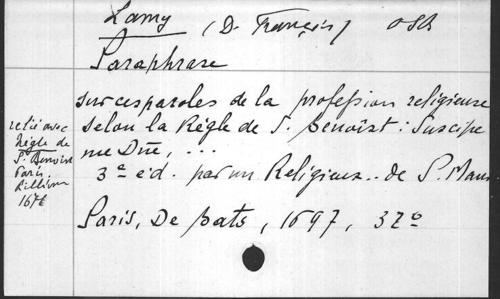 Lamy (D. François) OSB
Paraphrase
sur ces paroles de la profession religieuse
selon la Règle de S. Benoist : Suscipe
me Dñe, ...
3e éd. par un Religieux .. de S. Maur
Paris, De bats, 1697, 32o
relié avec
Règle de
S. Benoist
Paris